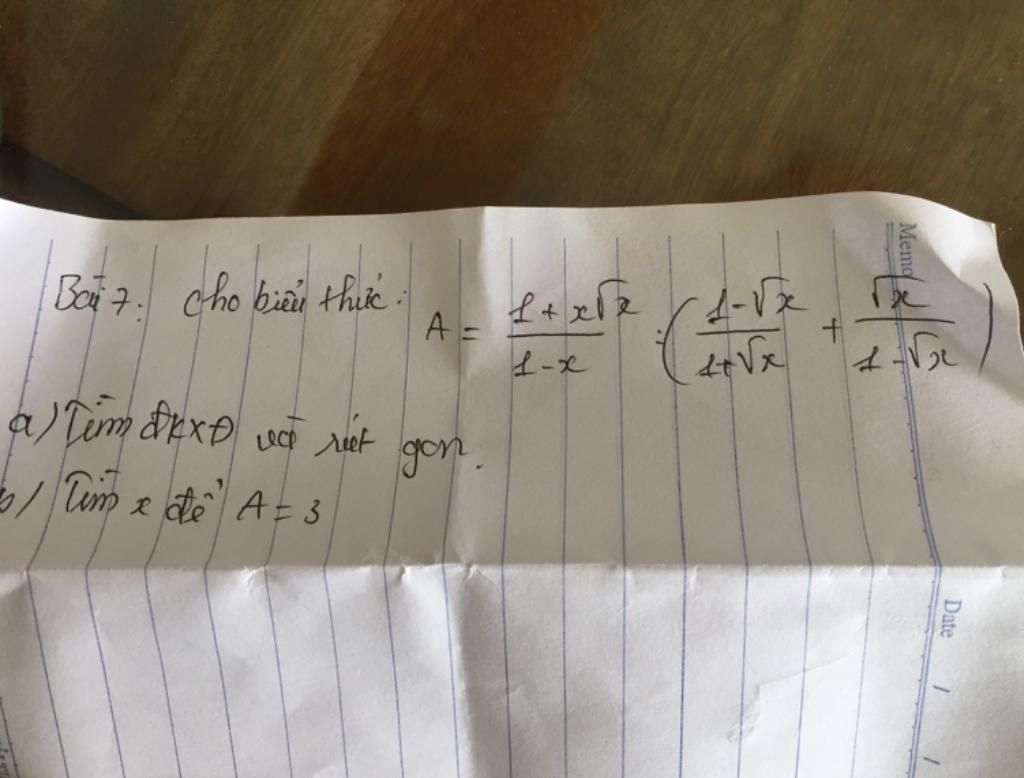 Bài 7: Cho biểu thức: A = \frac{1 + x\sqrt{x}}{1 - x} : \left( \frac{1 - \sqrt{x}}{1 + \sqrt{x}} + \frac{\sqrt{x}}{1 - \sqrt{x}} \right)
a) Tìm ĐKXĐ và rút gọn.
b) Tìm x để A = 3
Memo
Date / /